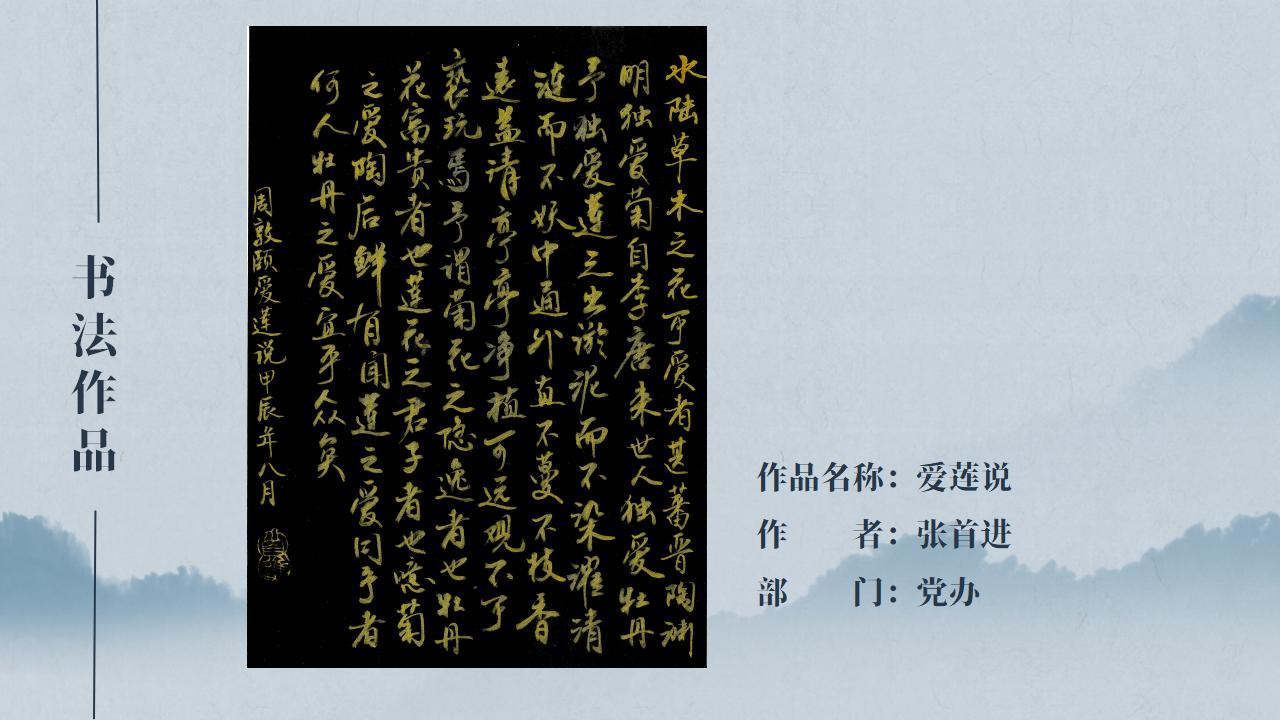 书法作品
水陆草木之花可爱者甚蕃晋陶渊
明独爱菊自李唐来世人独爱牡丹
予独爱莲之出淤泥而不染濯清
涟而不妖中通外直不蔓不枝香
遠益清亭亭净植可远观不可
亵玩焉予谓菊花之隐逸者也牡丹
花富贵者也莲花之君子者也噫菊
之爱陶后鲜有闻莲之爱同予者
何人牡丹之爱宜乎众矣
周敦颐爱莲说甲辰年八月
作品名称：爱莲说
作　　者：张首进
部　　门：党办